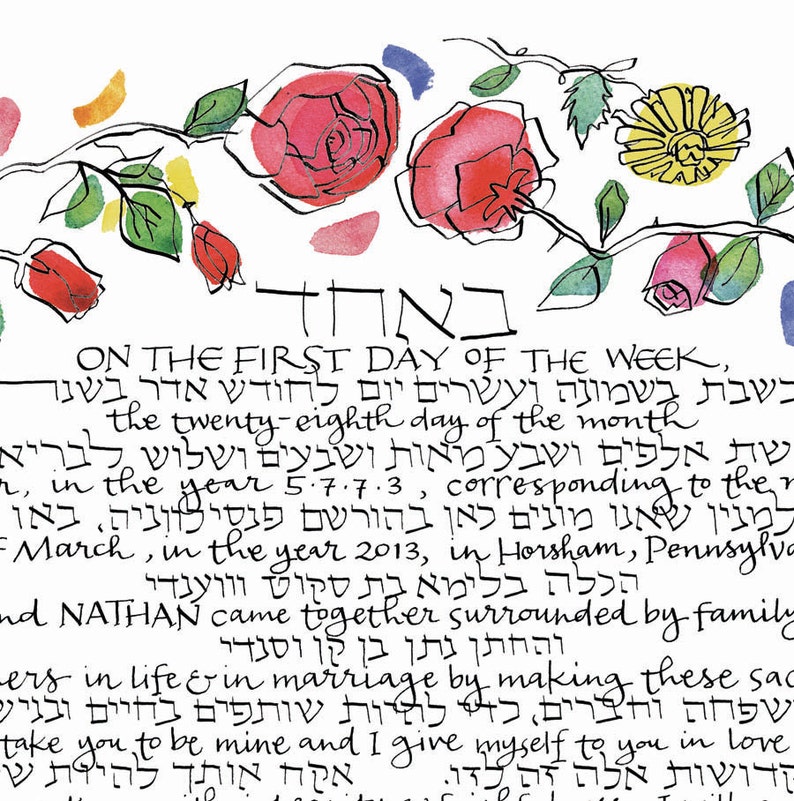 באחד
ON THE FIRST DAY OF THE WEEK,
בשבת בשמונה ועשרים יום לחודש אדר בשנ
the twenty-eighth day of the month
שת אלפים ושבע מאות ושבעים ושלוש לבריא
r, in the year 5·7·7·3, corresponding to the
למנין שאנו מונים כאן בהורשם פנסילווניה, באו
f March, in the year 2013, in Horsham, Pennsylva
הכלה בלימא בת סקוט וווענדי
nd NATHAN came together surrounded by family
והחתן נתן בן קן וסנדי
ners in life & in marriage by making these sac
שפחה וחברים, כדי להיות שותפים בחיים ובניש
take you to be mine and I give myself to you in love
קדושות אלה זה לזו. אקח אותך להיות ש